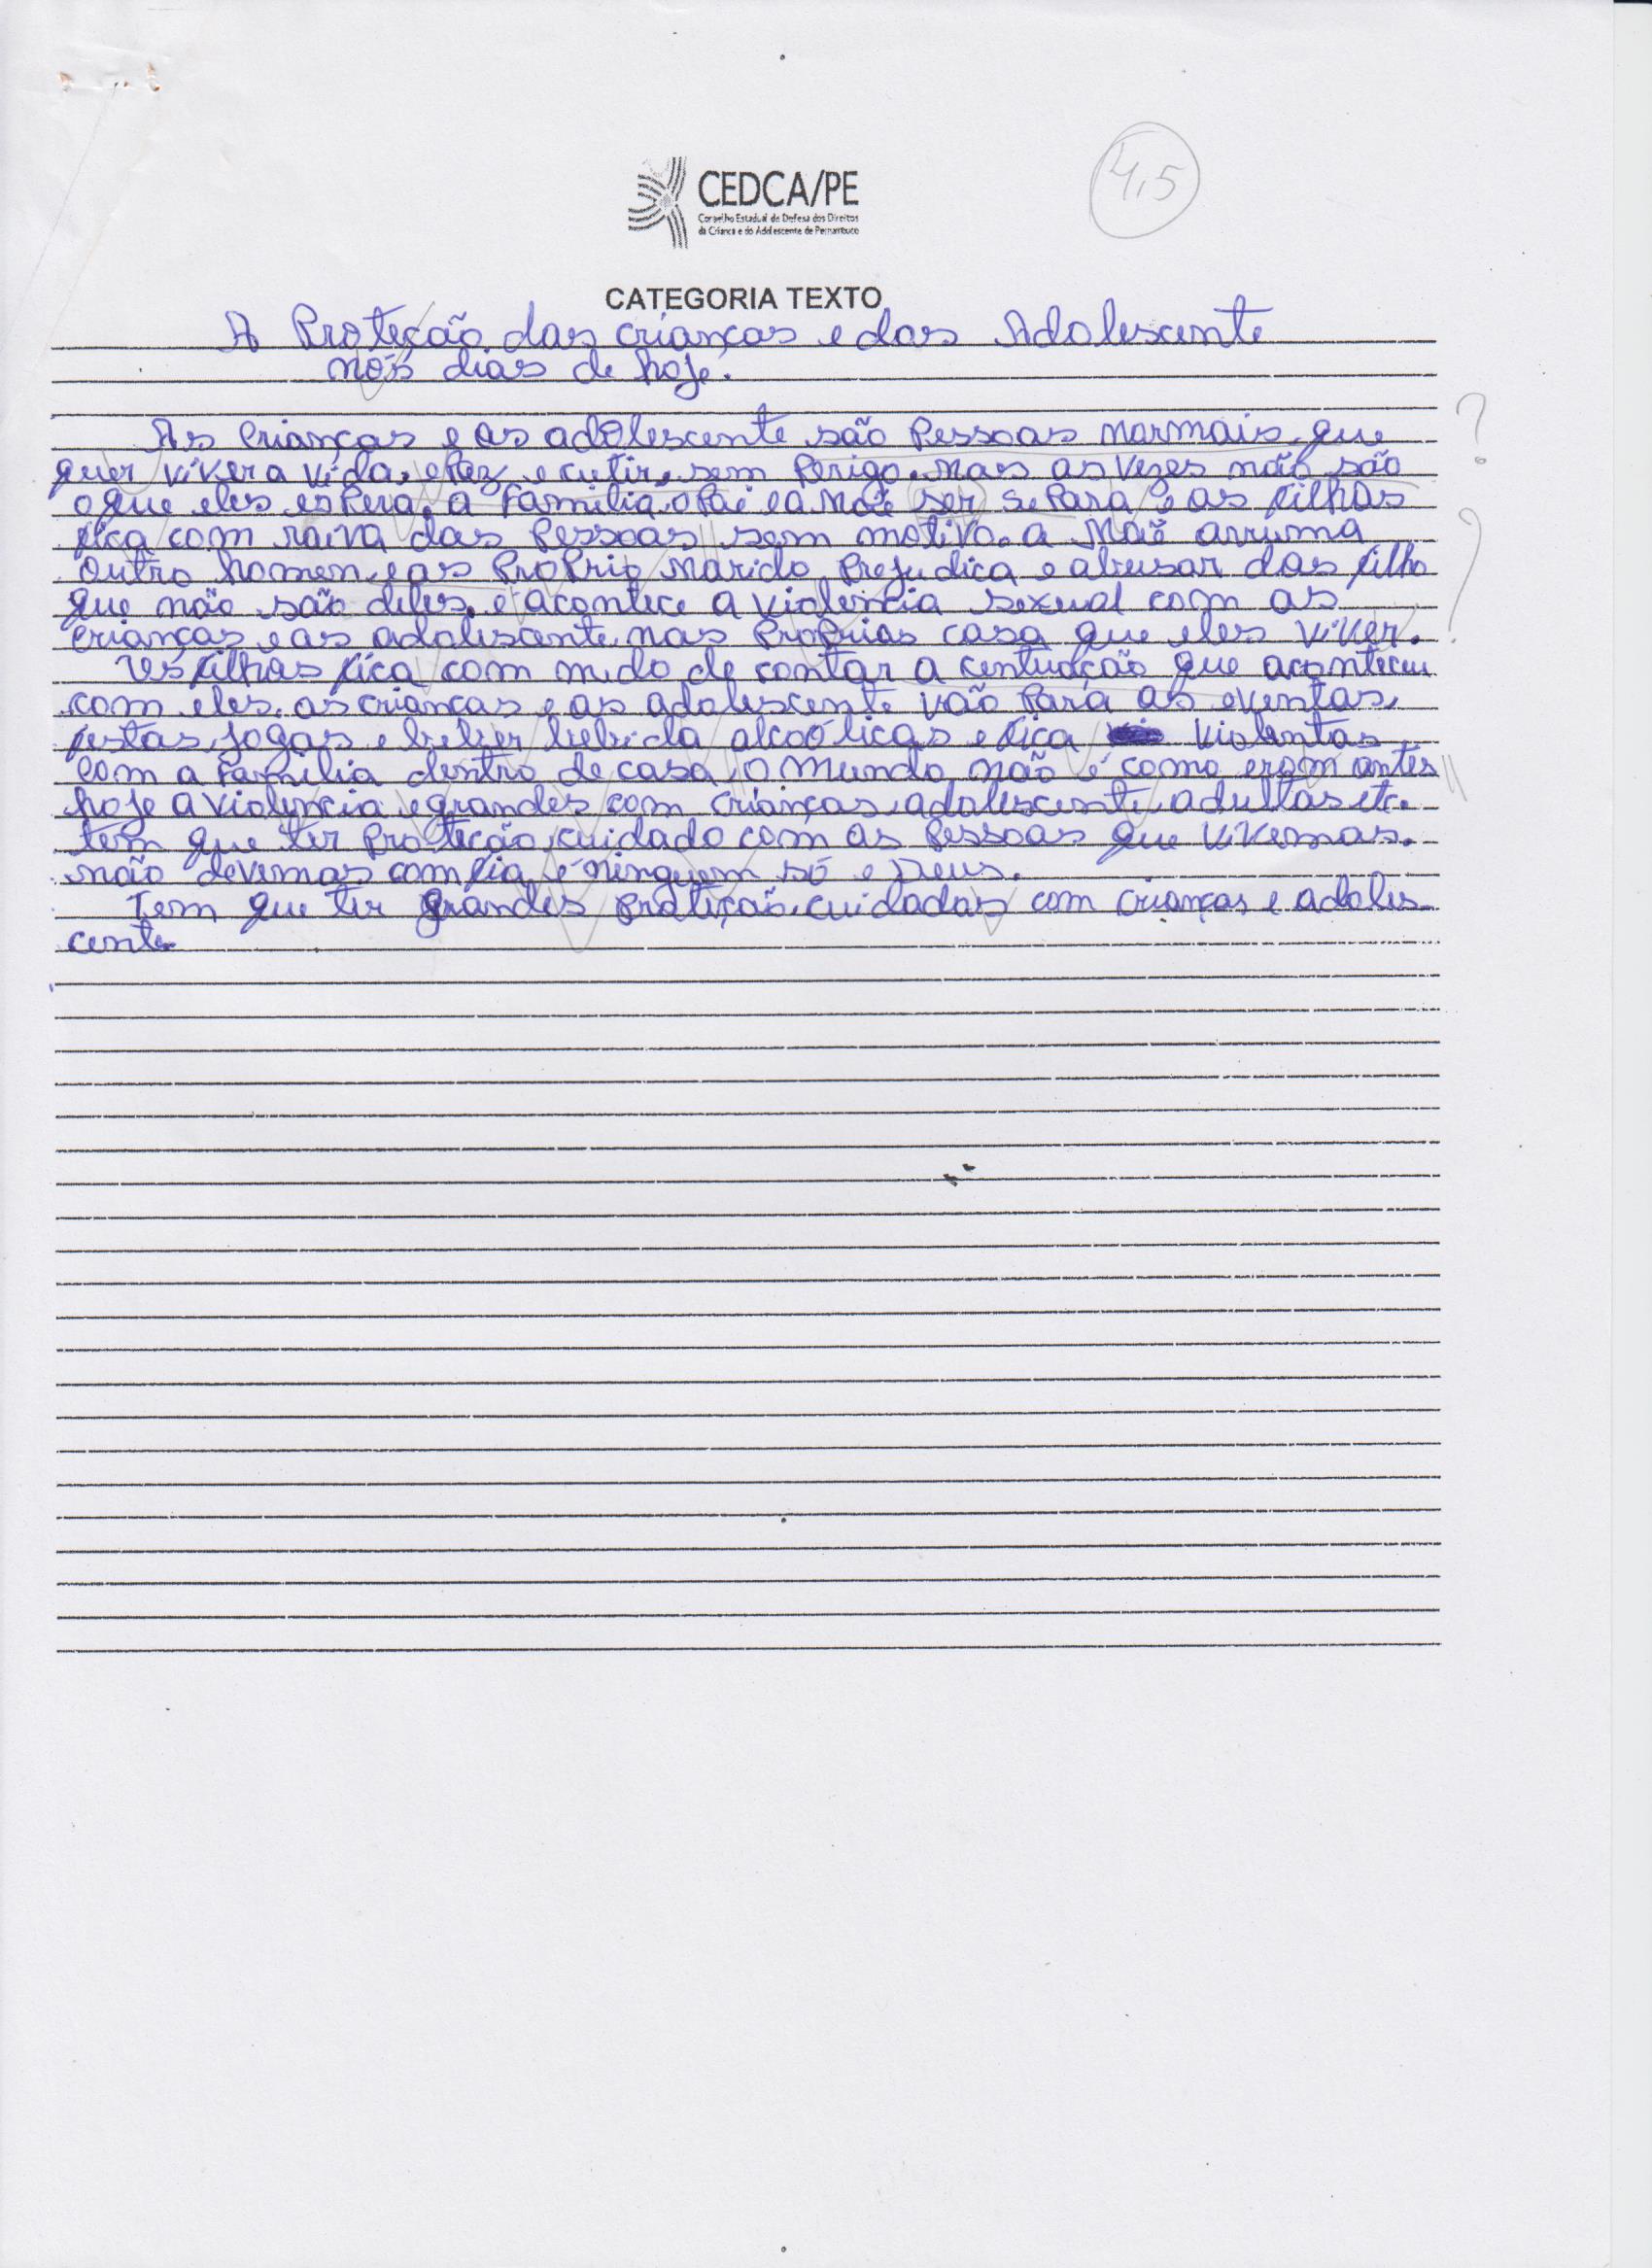 4,5
CEDCA/PE
Conselho Estadual de Defesa dos Direitos
da Criança e do Adolescente de Pernambuco
CATEGORIA TEXTO
A Proteção das crianças e das Adolescente
nós dias de hoje.
As crianças e as adolescente são Pessoas normais, que
quer viver a vida, e Paz e cutir, sem Perigo. mas as vezes não são
o que eles espera. a Familia o Pai e a Mãe ser separa e as filhos
fica com raiva das Pessoas sem motivo. a Mãe arruma
outro homem, e as Proprio marido Prejudica e abusar das filho
que não são deles, e acontece a violencia sexual com as
crianças e as adolescente nas Proprias casa que eles viver.
filhos fica com medo de contar a centuação que aconteceu
com eles. as crianças e as adolescente vão Para as eventas,
festas, jogas e beber bebida alcoólicas e fica violentas
com a Familia dentro de casa, o mundo não é como eram antes
hoje a violencia e grandes com crianças, adolescente, adultas etc.
tem que ter Proteção, cuidado com as Pessoas que vivemas.
não devemas comfia é ninguem só e Deus.
Tem que ter grandes proteção, cuidadas com crianças e adoles-
cente
? 
?